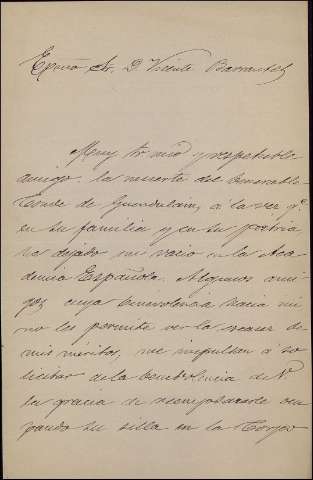 Excmo Sr. D. Vicente Barrantes
Muy Sr. mío y respetable
amigo: la muerte del venerable
Conde de Guendulain, á la vez q.e
en su familia y en su patria
ha dejado un vacio en la Aca
demia Española. Algunos ami
gos, cuya benevolencia hacia mí
no les permite ver la escasez de
mis méritos, me impulsan á so
licitar de la benevolencia de V
la gracia de reemplazarle ocu
pando su silla en la Corpo